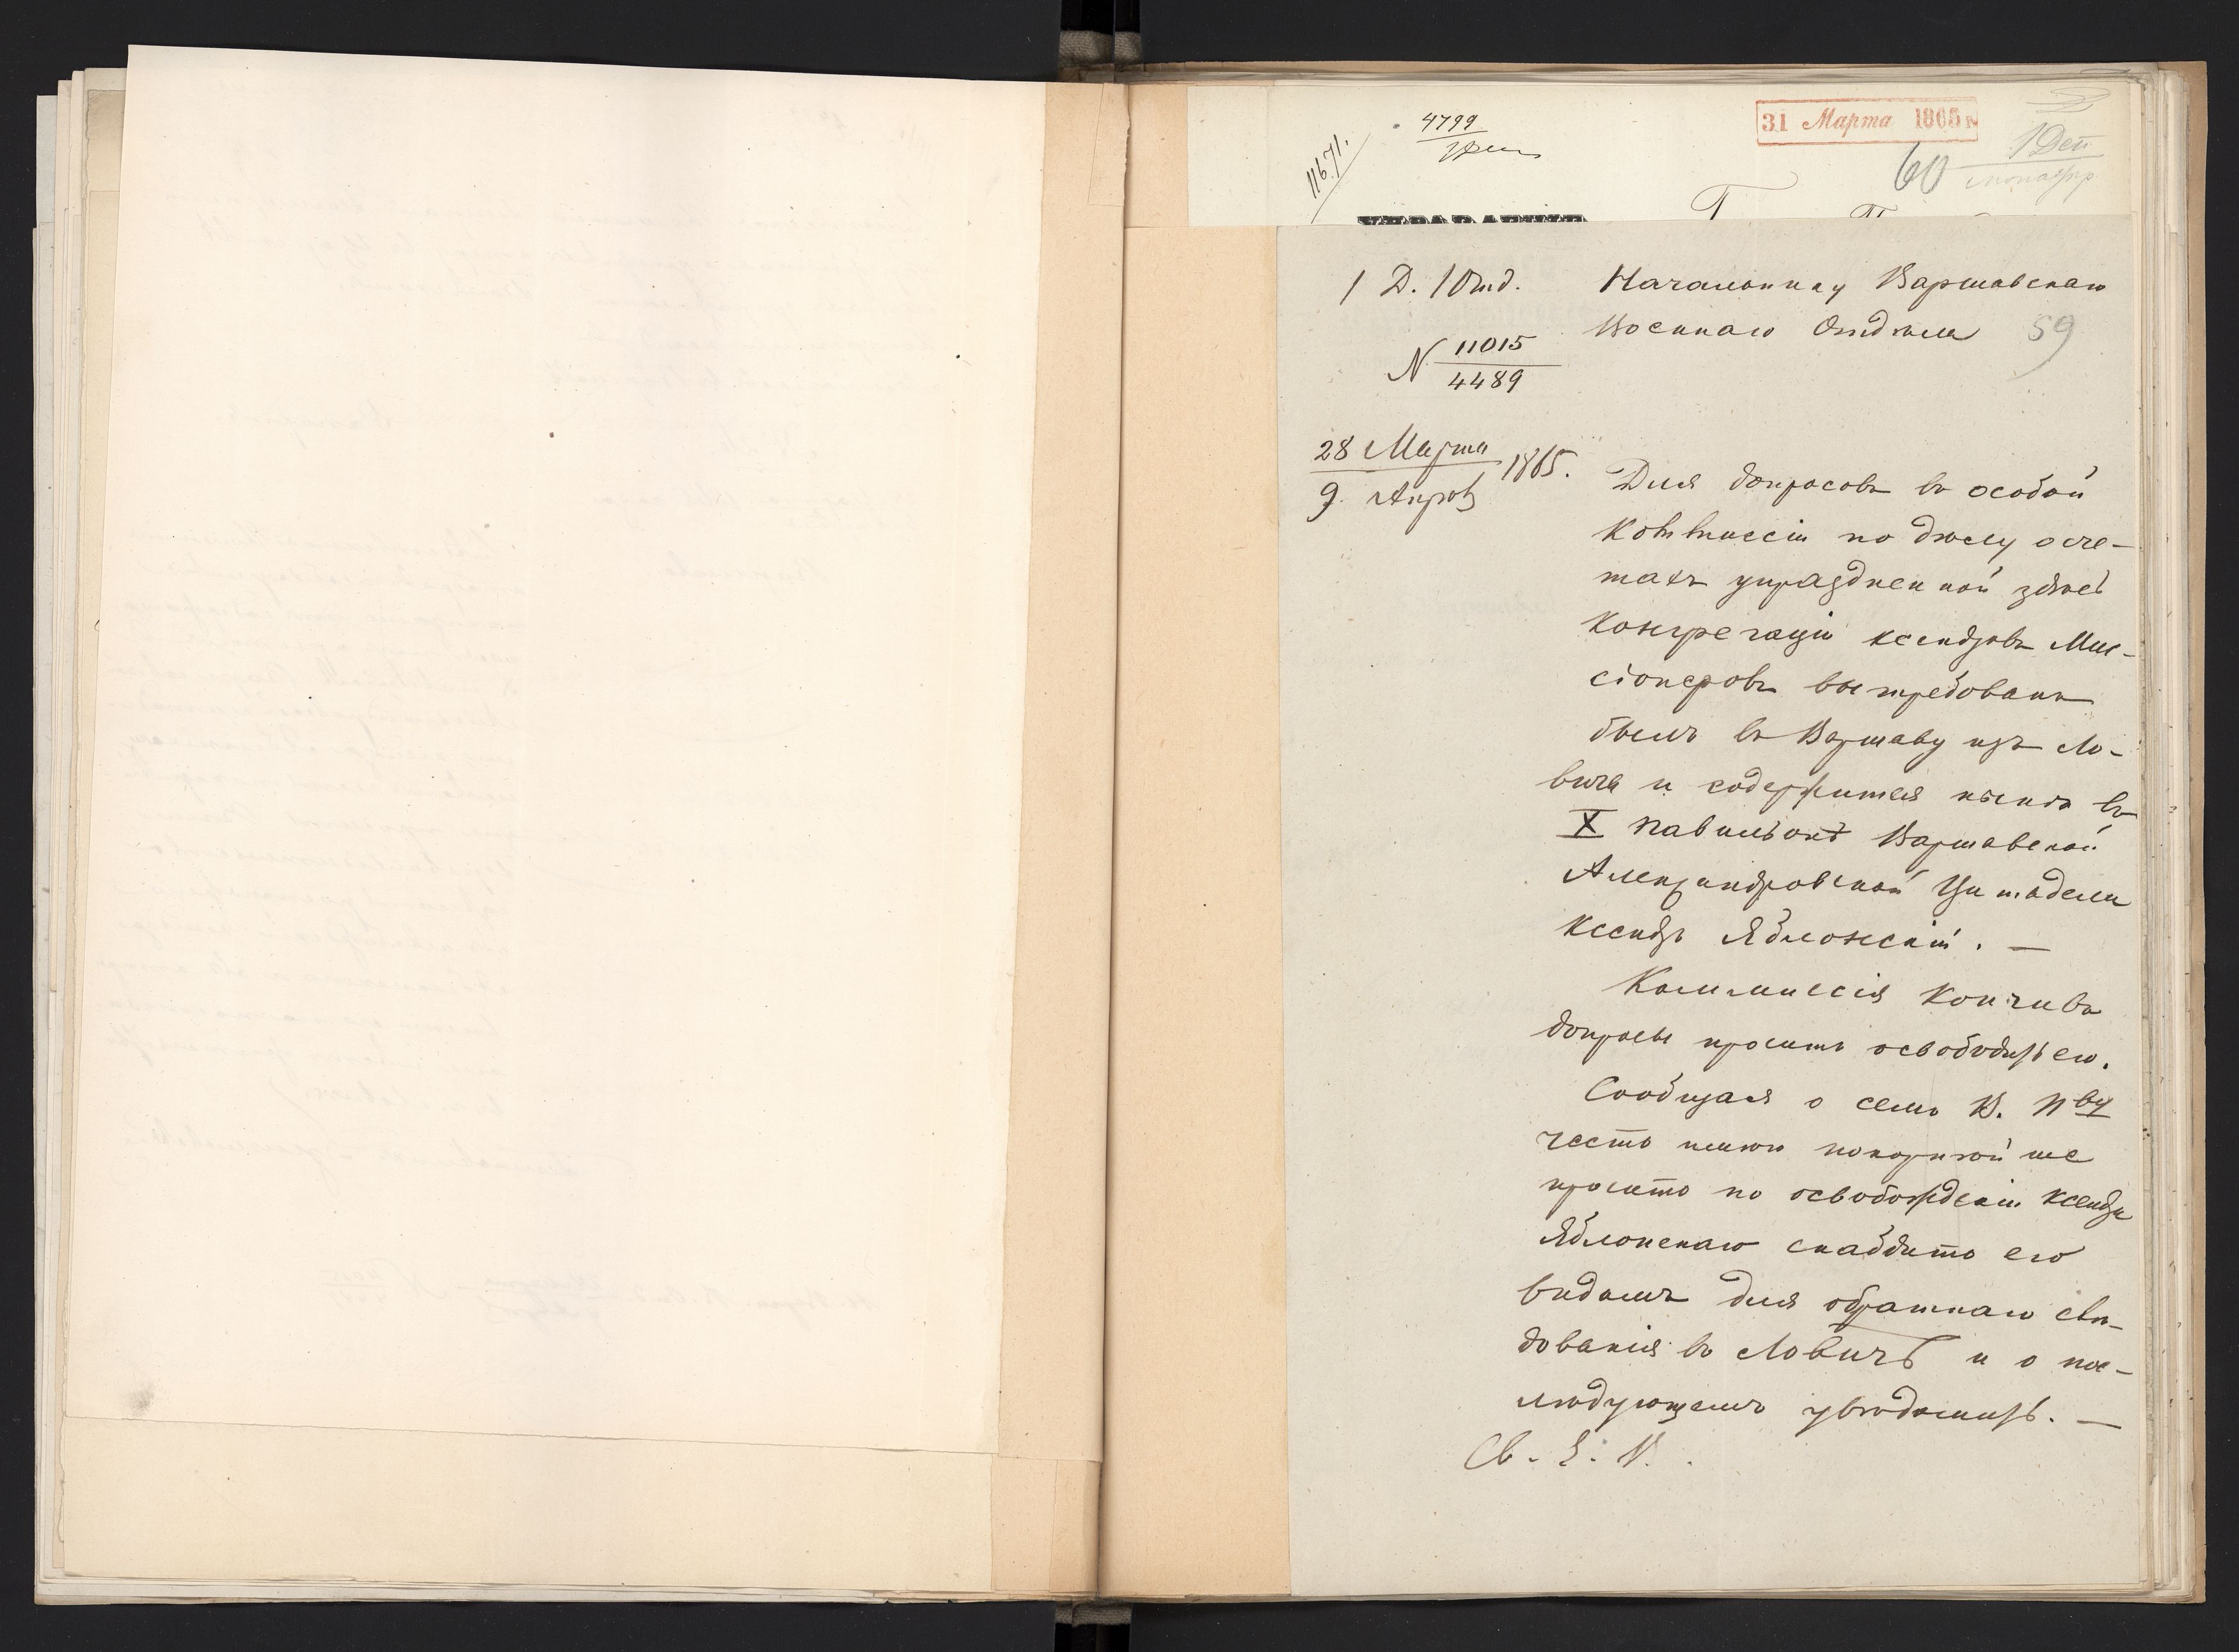 11671.
4799
31 Марта 1865 г.
1 Деп
60
УПРАВЛЕНІЕ
1 Д. 1 Отд.
Начальнику Варшавскаго
Военнаго Отдѣла 59
N 11015
4489
28 Марта
9 Апрѣ 1865.
Для допросовъ въ особой
Коммиссіи по дѣлу о сче-
тахъ упраздненной здѣсь
Конгрегаціи ксендзовъ Мис-
сіонеровъ вытребованъ
былъ въ Варшаву изъ Ло-
вича и содержится нынѣ въ
X павильонѣ Варшавской
Александровской Цитадели
Ксендзъ Яблонскій. —
Коммиссія кончивъ
допросы проситъ освободить его.
Сообщая о семъ В. Пву
честь имѣю покорнѣйше
просить по освобожденіи ксендза
Яблонскаго снабдить его
видомъ для обратнаго слѣ-
дованія въ Ловичъ и о пос-
лѣдующемъ увѣдомить. —
Св. Е. В.